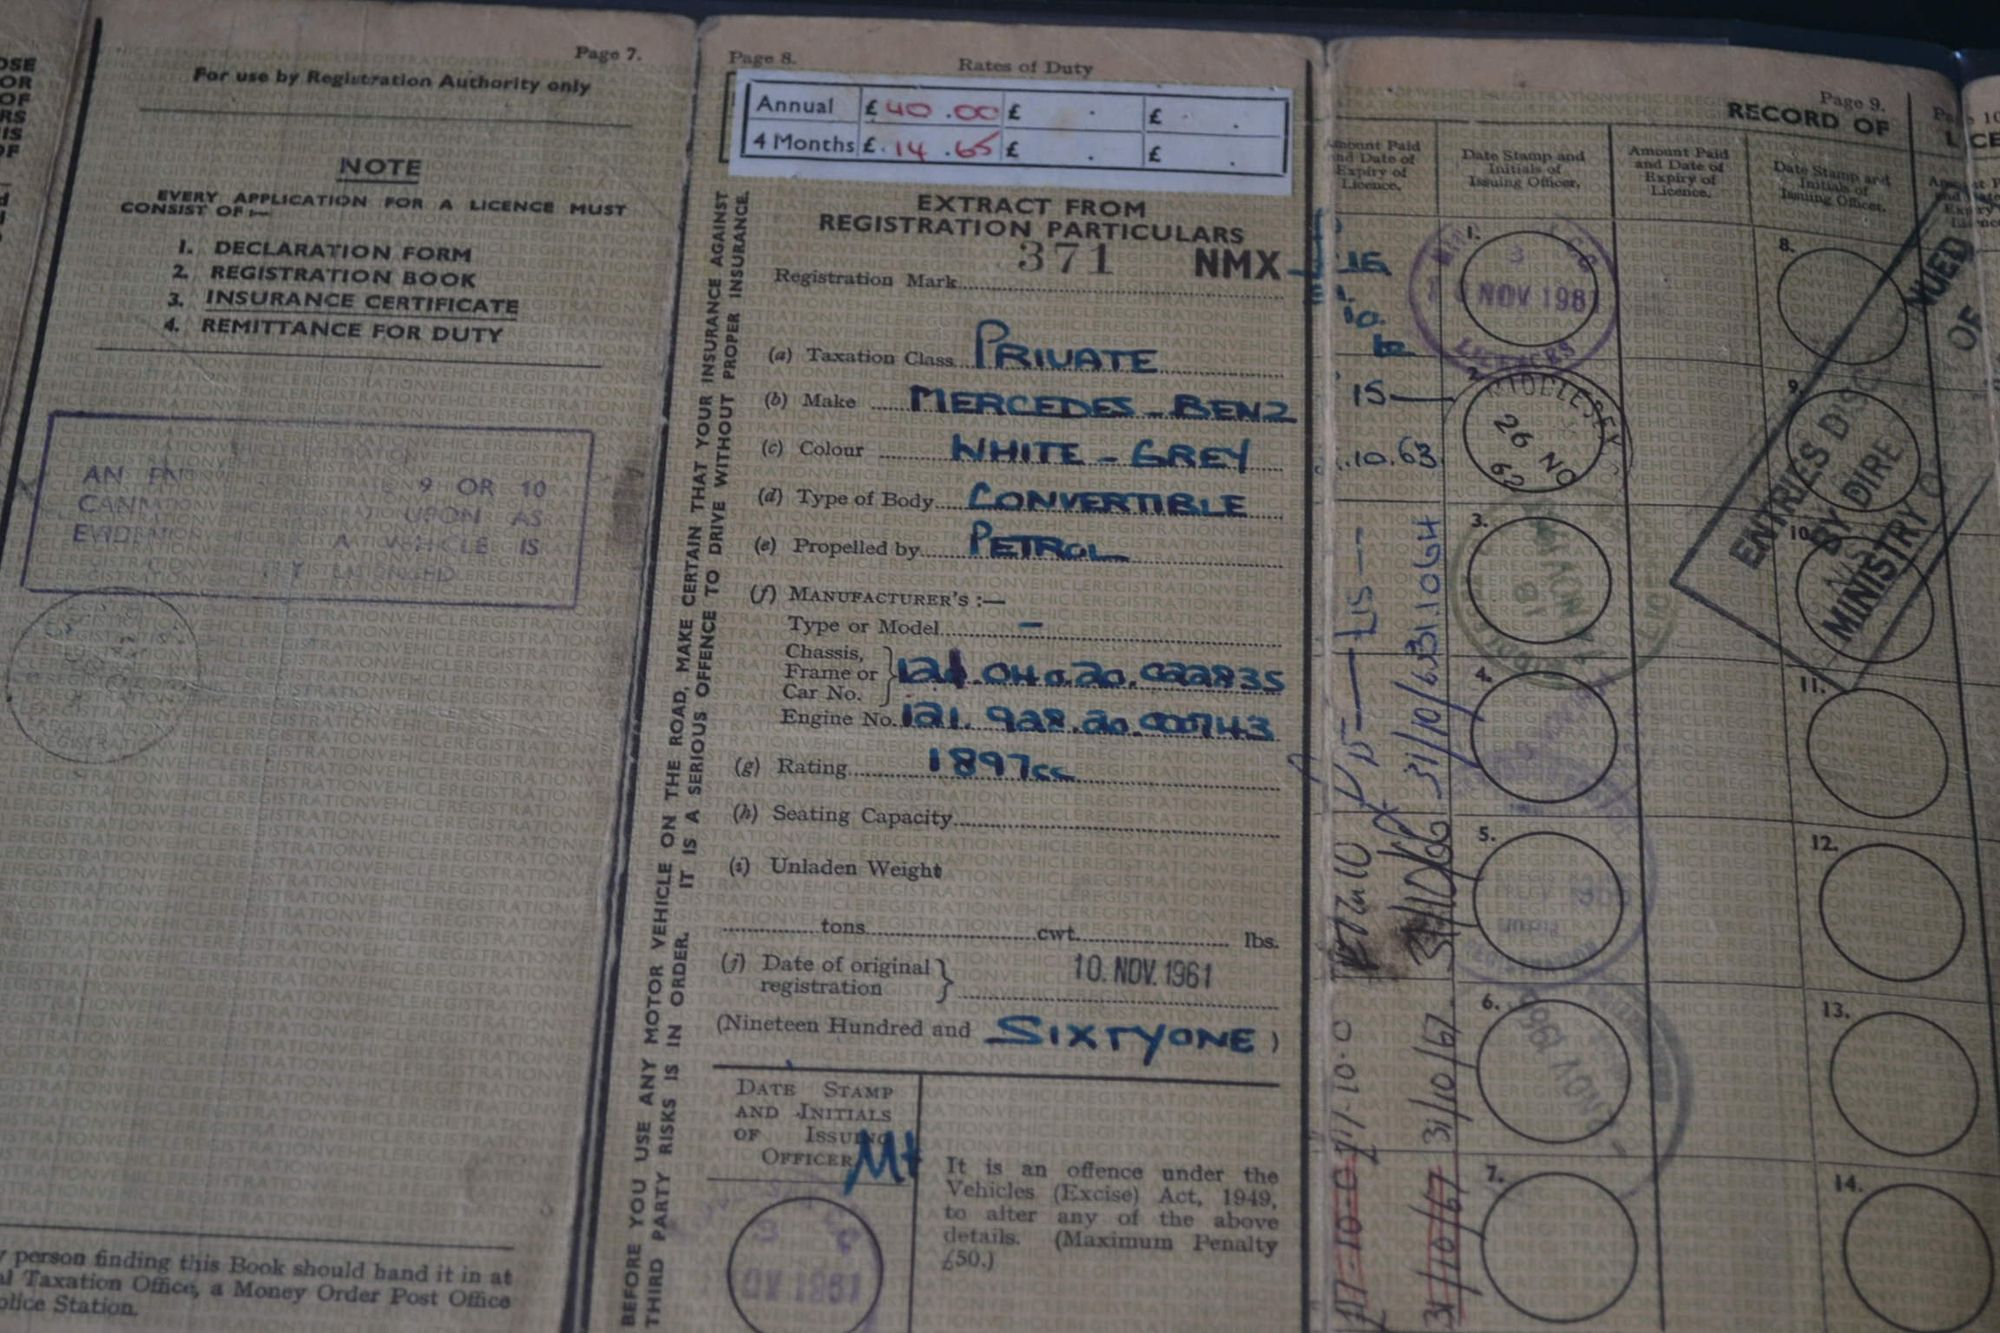 Page 7.
For use by Registration Authority only
NOTE
EVERY APPLICATION FOR A LICENCE MUST
CONSIST OF :—
1. DECLARATION FORM
2. REGISTRATION BOOK
3. INSURANCE CERTIFICATE
4. REMITTANCE FOR DUTY
9 OR 10
UPON AS
A VEHICLE IS
person finding this Book should hand it in at
Taxation Office, a Money Order Post Office
Station.
BEFORE YOU USE ANY MOTOR VEHICLE ON THE ROAD, MAKE CERTAIN THAT YOUR INSURANCE AGAINST
THIRD PARTY RISKS IS IN ORDER. IT IS A SERIOUS OFFENCE TO DRIVE WITHOUT PROPER INSURANCE.
Page 8. Rates of Duty
Annual £40.00 £ . £ .
4 Months £.14.65 £ . £ .
EXTRACT FROM
REGISTRATION PARTICULARS
Registration Mark 371 NMX
(a) Taxation Class PRIVATE
(b) Make MERCEDES-BENZ
(c) Colour WHITE-GREY
(d) Type of Body CONVERTIBLE
(e) Propelled by PETROL
(f) MANUFACTURER'S :—
Type or Model —
Chassis,
Frame or
Car No. 121.040.20.022835
Engine No. 121.928.20.000743
(g) Rating 1897cc
(h) Seating Capacity
(i) Unladen Weight
tons cwt. lbs.
(j) Date of original
registration 10. NOV. 1961
(Nineteen Hundred and SIXTYONE)
DATE STAMP
AND INITIALS
OF ISSUING
OFFICER
It is an offence under the
Vehicles (Excise) Act, 1949,
to alter any of the above
details. (Maximum Penalty
£50.)
Page 9.
RECORD OF
Amount Paid
and Date of
Expiry of
Licence.
Date Stamp and
Initials of
Issuing Officer.
Amount Paid
and Date of
Expiry of
Licence.
Date Stamp and
Initials of
Issuing Officer.
1.
NOV 1961
LICENCES
15
10.63
2.
MIDDLESEX
26 NO
62
3.
4.
31/10/66
5.
6.
31/10/67
NOV
7.
31/10/67
8.
9.
10.
11.
12.
13.
14.
ENTRIES
BY DIRE
MINISTRY OF